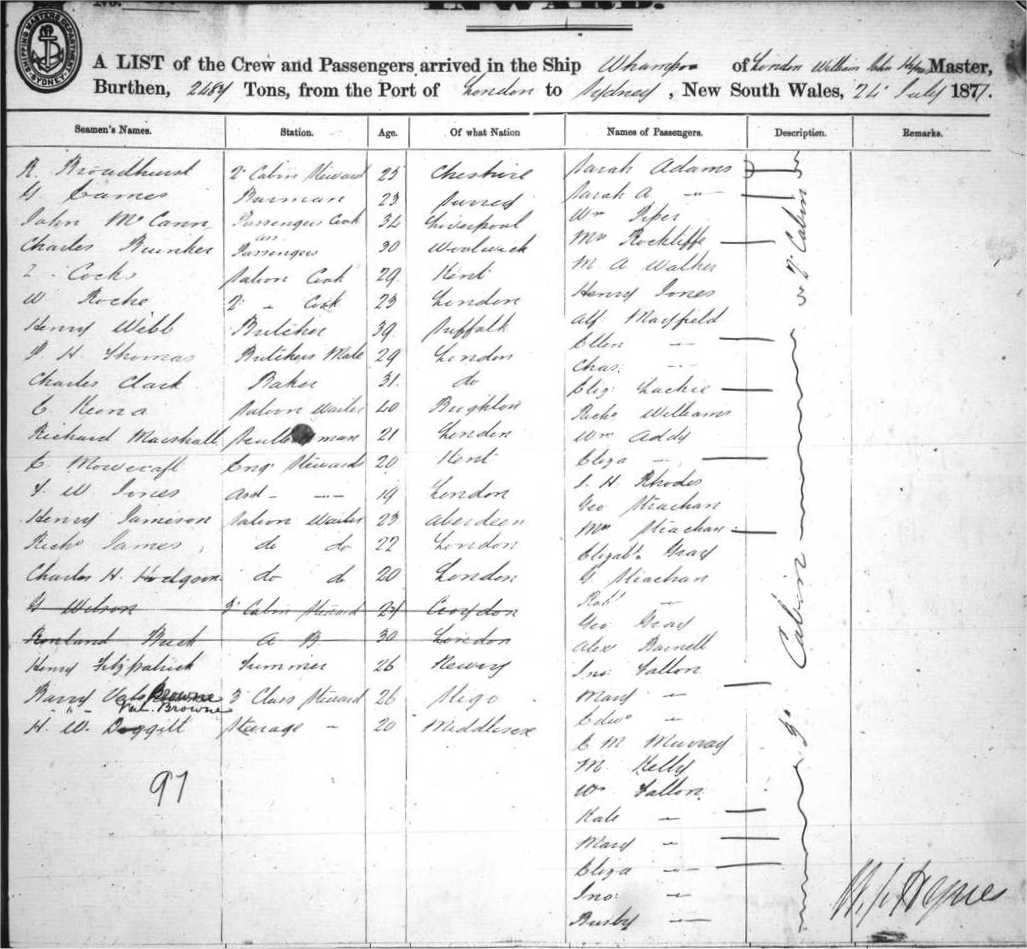 INWARD.
SHIPPING MASTERS DEPARTMENT SYDNEY
A LIST of the Crew and Passengers arrived in the Ship Whampoa of London William John Master,
Burthen, Tons, from the Port of London to Sydney, New South Wales, July 1877.
Seamen's Names. Station. Age. Of what Nation Names of Passengers. Description. Remarks.
R. Broadhurst 2d Cabin Steward 25 Cheshire Sarah Adams
G Barman 23 Surrey Sarah A -"-
John McCann Passengers Cook 34 Liverpool Wm Piper
Charles Passengers 30 Woolwich Mr Rockliffe
Cocks Saloon Cook 29 Kent M A Walker
W Roche 2d - Cook 23 London Henry Jones
Henry Webb Butcher 39 Suffolk Alf Mayfield
H. Thomas Butchers Mate 29 London Ellen -
Charles Clark Baker 31. do Chas. -
C Keona Saloon Waiter 40 Brighton Eliz. Lackie
Richard Marshall man 21 London Richd Williams
C Kent Wm Addy
W Jones Asst - -- 19 London Eliza -
Henry Jameson Saloon Waiter 23 Aberdeen J. H Rhodes
Richd James do do 22 London Geo Strachan
Charles H. Hodgson do do 20 London Mrs Strachan
G Wilson 3d Cabin Steward 24 Croydon Elizabth Gray
Rowland A B 30 London G Strachan
Henry Fitzpatrick Trimmer 26 Newry Robt -
Barry 3 Class Steward 26 Sligo Geo Gray
Val. Browne
H. W. Doggitt Steerage - 20 Middlesex Alex Barnell
Jno Fallon
Mary -
Edwd -
E M Murray
M. Kelly
Wm Fallon
Kate -
Mary -
Eliza -
Jno -
Busby -
97
2d Cabin
3d Cabin